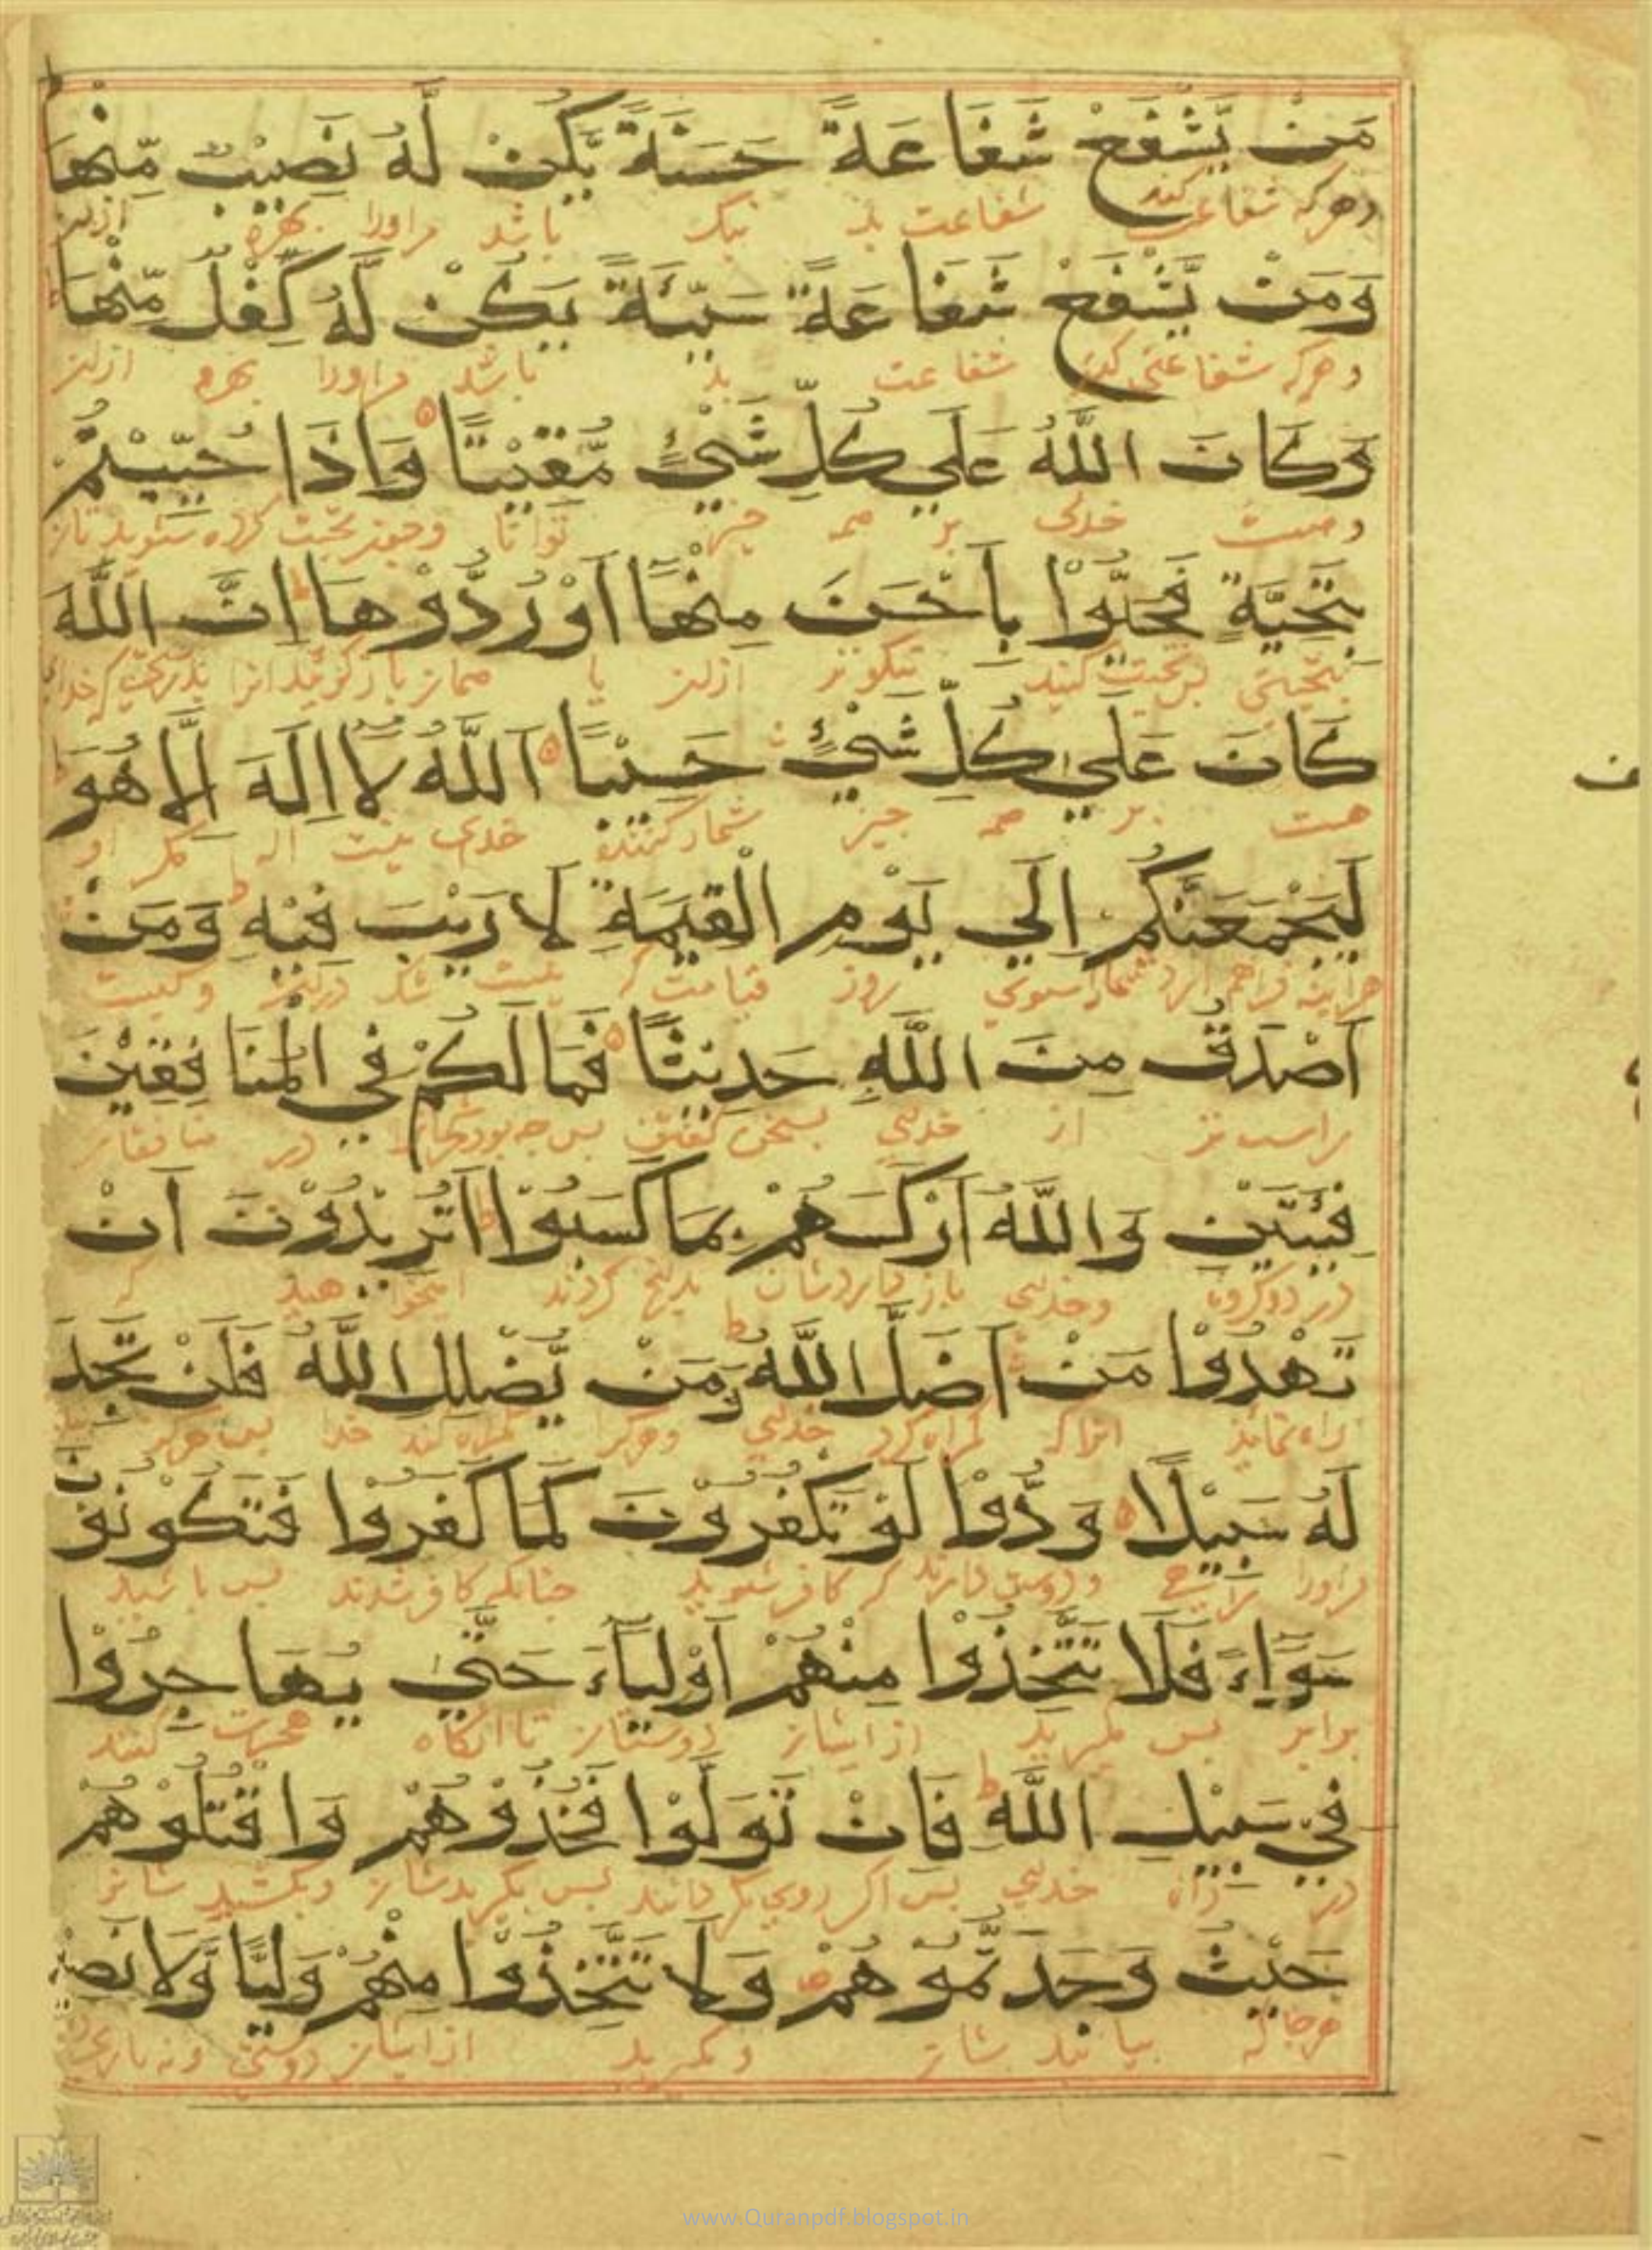 مَنْ يَّشْفَعْ شَفَاعَةً حَسَنَةً يَّكُنْ لَّهُ نَصِيْبٌ مِّنْهَا
وهركه شفاعت كند شفاعت نيك باشد مراورا بهره ازان
وَمَنْ يَّشْفَعْ شَفَاعَةً سَيِّئَةً يَكُنْ لَّهُ كِفْلٌ مِّنْهَا
وهركه شفاعتى كند شفاعت بد باشد مراورا بهره ازان
وَكَانَ اللَّهُ عَلَي كُلِّ شَيْءٍ مُّقِيْتًا وَاِذَا حُيِّيْتُمْ
وهست خداى بر همه چيز توانا وچون تحيت كرده شويد
بِتَحِيَّةٍ فَحَيُّوْا بِاَحْسَنَ مِنْهَا اَوْ رُدُّوْهَا اِنَّ اللَّهَ
بتحيتى پس تحيت كنيد نيكوتر ازان يا همان باز كردانيد انرا بدرستى كه خداى
كَانَ عَلَي كُلِّ شَيْءٍ حَسِيْبًا اَللَّهُ لَا اِلَهَ اِلَّا هُوَ
هست بر همه چيز شمار كننده خداى نيست اله مكر او
لَيَجْمَعَنَّكُمْ اِلَي يَوْمِ الْقِيَمَةِ لَا رَيْبَ فِيْهِ وَمَنْ
هراينه فراهم ارد شمارا بسوي روز قيامت كه نيست شك دران وكيست
اَصْدَقُ مِنَ اللَّهِ حَدِيْثًا فَمَا لَكُمْ فِي الْمُنَافِقِيْنَ
راست تر از خداى بسخن كفتن پس چه بود شمارا در منافقان
فِئَتَيْنِ وَاللَّهُ اَرْكَسَهُمْ بِمَا كَسَبُوْا اَتُرِيْدُوْنَ اَنْ
در دو كروه وخداى باز كردشان بدانچ كردند ايخواهيد كه
تَهْدُوْا مَنْ اَضَلَّ اللَّهُ وَمَنْ يُّضْلِلِ اللَّهُ فَلَنْ تَجِدَ
راه نمايد انرا كه كمراه كرد خداى وهركرا كمراه كند خدا پس هركز
لَهُ سَبِيْلًا وَدُّوْا لَوْ تَكْفُرُوْنَ كَمَا كَفَرُوْا فَتَكُوْنُوْنَ
مراورا راهى ودوست دارند كه كافر شويد چنانكه كافر شدند پس باشيد
سَوَاءً فَلَا تَتَّخِذُوْا مِنْهُمْ اَوْلِيَاءَ حَتَّي يُهَاجِرُوْا
برابر پس مكيريد از ايشان دوستان تا انكاه هجرت كنند
فِي سَبِيْلِ اللَّهِ فَاِنْ تَوَلَّوْا فَخُذُوْهُمْ وَاقْتُلُوْهُمْ
در راه خداى پس اكر روي بكردانند پس بكيريدشان وبكشيد شان
حَيْثُ وَجَدْتُّمُوْهُمْ وَلَا تَتَّخِذُوْا مِنْهُمْ وَلِيًّا وَّلَا نَصِيْ
هرجا كه بيابيد شان ومكيريد از ايشان دوستى ونه يارى
www.Quranpdf.blogspot.in